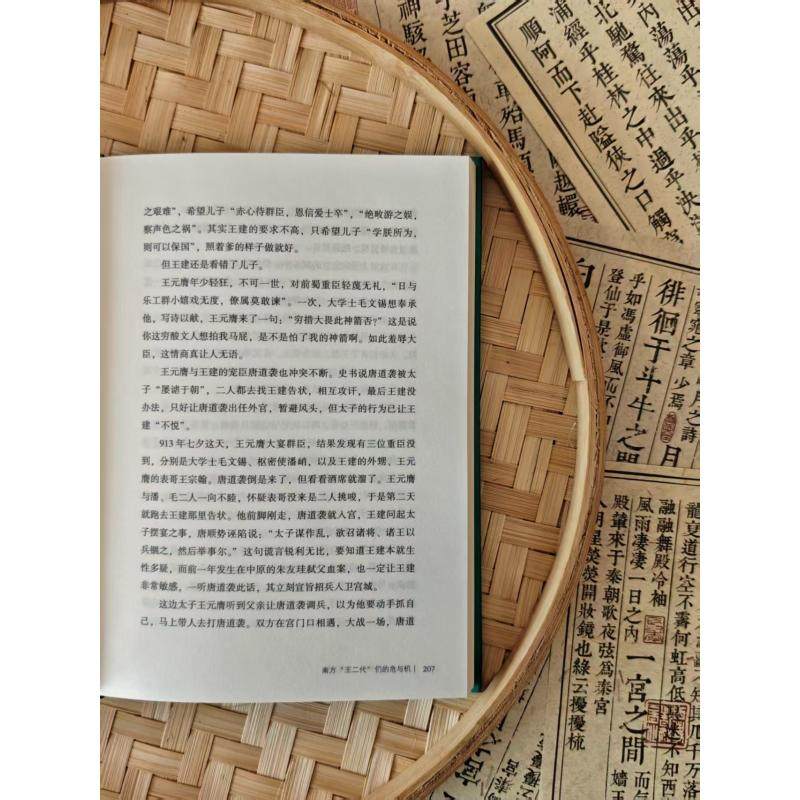 之艰难”，希望儿子“赤心待群臣，恩信爱士卒”，“绝畋游之娱，
察声色之祸”。其实王建的要求不高，只希望儿子“学朕所为，
则可以保国”，照着爹的样子做就好。
但王建还是看错了儿子。
王元膺年少轻狂，不可一世，对前蜀重臣轻蔑无礼，“日与
乐工群小嬉戏无度，僚属莫敢谏”。一次，大学士毛文锡想奉承
他，写诗以献，王元膺来了一句：“穷措大畏此神箭否？”这是说
你这穷酸文人想拍我马屁，是不是怕了我的神箭啊。如此羞辱大
臣，这情商真让人无语。
王元膺与王建的宠臣唐道袭也冲突不断。史书说唐道袭被太
子“屡谑于朝”，二人都去找王建告状，相互攻讦，最后王建没
办法，只好让唐道袭出任外官，暂避风头，但太子的行为已让王
建“不悦”。
913 年七夕这天，王元膺大宴群臣，结果发现有三位重臣没
到，分别是大学士毛文锡、枢密使潘峭，以及王建的外甥、王元
膺的表哥王宗翰。唐道袭倒是来了，但看看酒席就溜了。王元膺
与潘、毛二人一向不睦，怀疑表哥没来是二人挑唆，于是第二天
就跑去王建那里告状。他前脚刚走，唐道袭就入宫，王建问起太
子摆宴之事，唐顺势诬陷说：“太子谋作乱，欲召诸将、诸王以
兵锢之，然后举事尔。”这句谎言锋利无比，要知道王建本就生
性多疑，而前一年发生在中原的朱友珪弑父血案，也一定让王建
非常敏感，一听唐道袭此话，其立刻宣旨招兵入卫宫城。
这边太子王元膺听到父亲让唐道袭调兵，以为他要动手抓自
己，马上带人去打唐道袭。双方在宫门口相遇，大战一场，唐道
南方“王二代”们的危与机 | 207
神骇
芝田容
順阿而下赴隘俠之口觸
浦經乎桂林之中過乎泱
北馳騖往來出乎
内蕩蕩乎
徘徊于斗牛
窕之章少焉
月之詩
乎如馮虛御風
登仙于是
龍夏道行空不霽何虹高低
融融舞殿冷袖
風雨淒淒一日之内一宮之間
殿輦來于秦朝歌夜弦爲秦宮
人明星熒熒開妝鏡也綠云擾擾梳
而氣